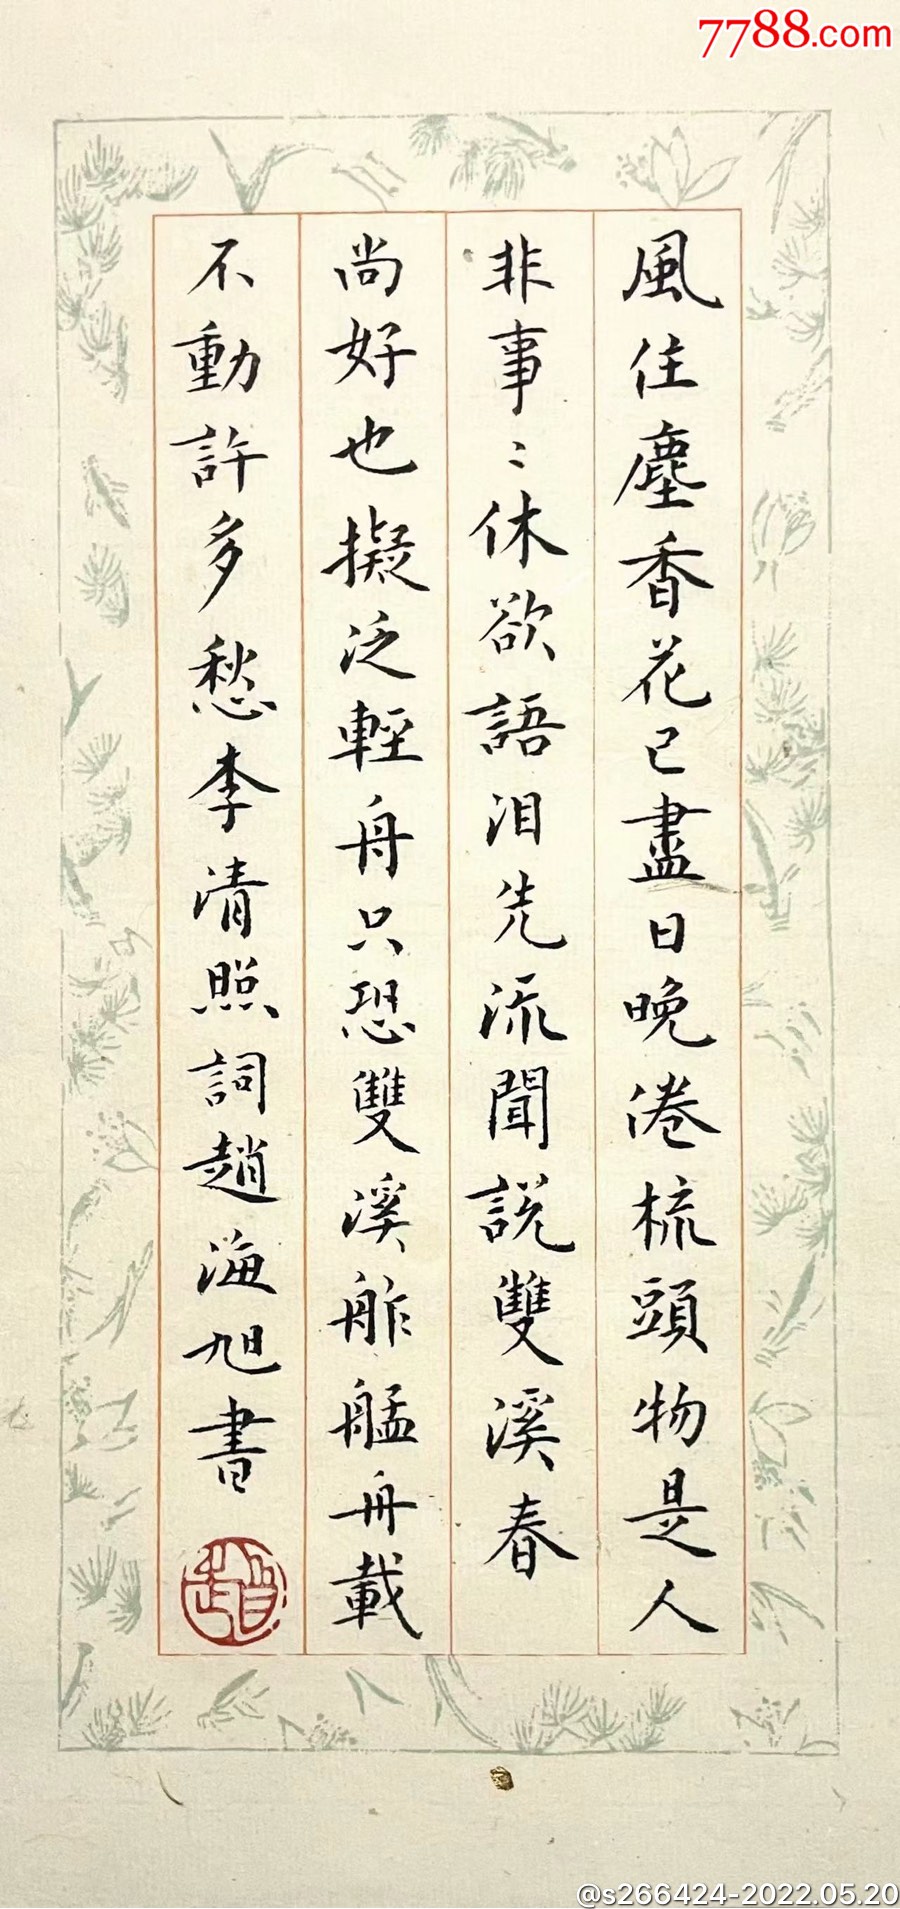 7788.com
風住塵香花已盡日晚倦梳頭物是人
非事〻休欲語泪先流聞説雙溪春
尚好也擬泛輕舟只恐雙溪舴艋舟載
不動許多愁李清照詞趙海旭書
趙
@s266424-2022.05.20